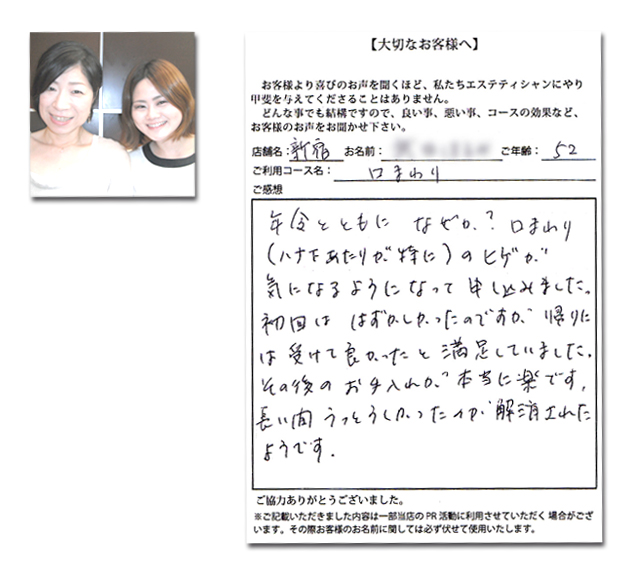 【大切なお客様へ】
お客様より喜びのお声を聞くほど、私たちエステティシャンにやり
甲斐を与えてくださることはありません。
どんな事でも結構ですので、良い事、悪い事、コースの効果など、
お客様のお声をお聞かせ下さい。
店舗名: 新宿 お名前: ご年齢: 52
ご利用コース名: 口まわり
ご感想
年令とともに なぜか? 口まわり
(ハナ下あたりが特に)のヒゲが
気になるようになって申し込みました。
初回は はずかしかったのですが 帰りに
は受けて良かったと満足していました。
その後のお手入れが本当に楽です。
長い間うっとうしかったのが解消された
ようです.
ご協力ありがとうございました。
※ご記載いただきました内容は一部当店のPR活動に利用させていただく場合がござ
います。その際お客様のお名前に関しては必ず伏せて使用いたします。